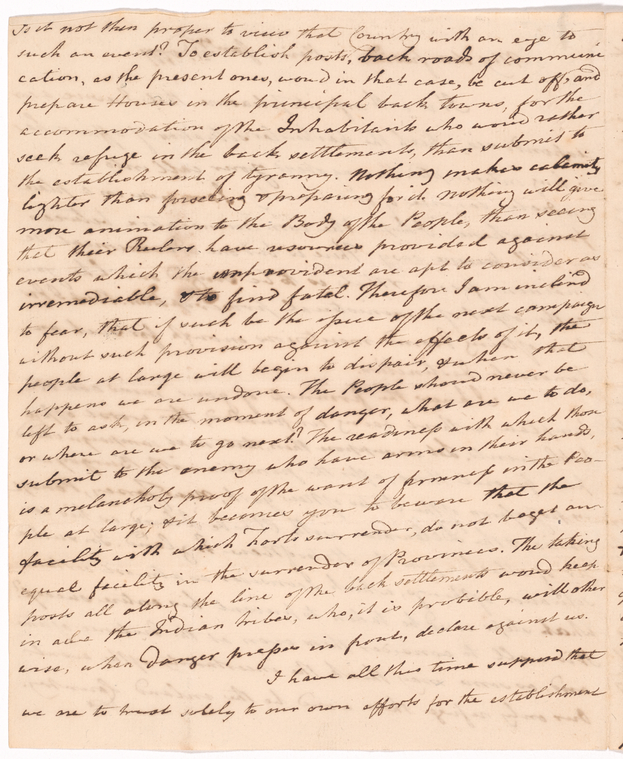 Is it not then proper to view that Country with an eye to
such an event? To establish posts, back roads of communi-
cation, as the present ones, would in that case, be cut off, and
prepare Houses in the principal back towns, for the
accommodation of the Inhabitants who would rather
seek refuge in the back settlements, than submit to
the establishment of tyranny. Nothing makes calamity
lighter than foreseeing & preparing for it. Nothing will give
more animation to the Body of the People, than seeing
that their Rulers have resources provided against
events which the improvident are apt to consider as
irremediable, & to find fatal. Therefore I am inclin'd
to fear, that if such be the issue of the next campaign
without such provision against the effects of it, the
people at large will begin to dispair, & when that
happens we are undone. The People should never be
left to ask, in the moment of danger, what are we to do,
or where are we to go next? The readiness with which those
submit to the enemy who have arms in their hands,
is a melancholy proof of the want of firmness in the Peo-
ple at large; & it becomes you to beware that the
facility with which Forts surrender, do not beget an
equal facility in the surrender of Provinces. The taking
posts all along the line of the back settlements would keep
in awe the Indian tribes, who, it is probible, will other
wise, when danger presses in front, declare against us.
I have all this time supposd that
we are to trust solely to our own efforts for the establishment